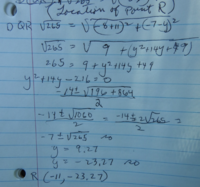 Location of Point R)
① QR √265 = √(-8+11)² + (-7-y)²
√265 = √9 + (y²+14y+49)
265 = 9 + y²+14y+49
y²+14y-216=0
-14±√196+864
2
-14±√1060 = -14±2√265
2 2
-7±√265
y = 9.27
y = -23.27
R (-11, -23.27)